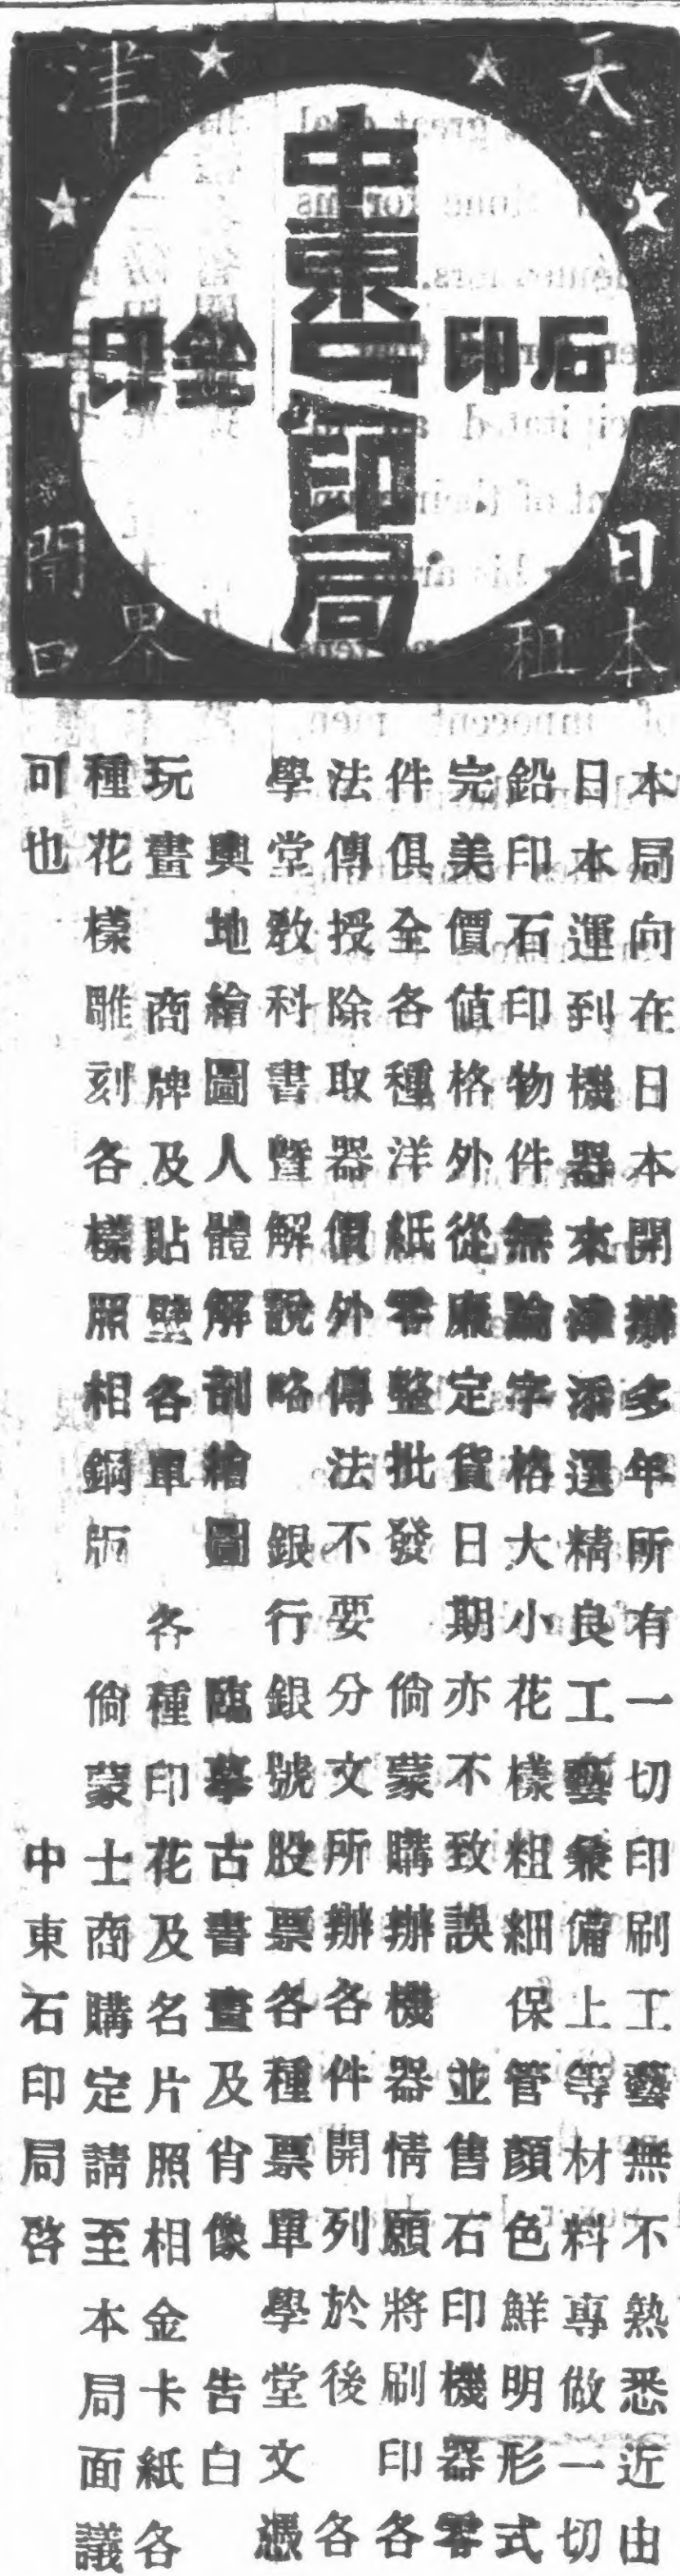 天津
中東石印局
石印
鉛印
日本租界
開日
本局向在日本開辦多年所有一切印刷工藝無不熟悉近由
日本運到機器來津添選精良工藝兼備上等材料專做一切
鉛印石印物件無論字格大小花樣粗細保管顏色鮮明形式
完美價值格外從廉定貨日期亦不致誤 並售石印機器零
件俱全各種洋紙零整批發 倘蒙購辦機器情願將刷印各
法傳授除取器價外傳法不要分文所辦各件開列於後 各
學堂教科書暨解說略 銀行銀號股票各種票單學堂文憑
輿地繪圖人體解剖繪圖 臨摹古書畫及肖像 告白
玩畫 商牌及貼壁各單 各種印花及名片照相金卡紙各
種花樣雕刻各樣照相銅版 倘蒙士商購定請至本局面議
可也 中東石印局啓